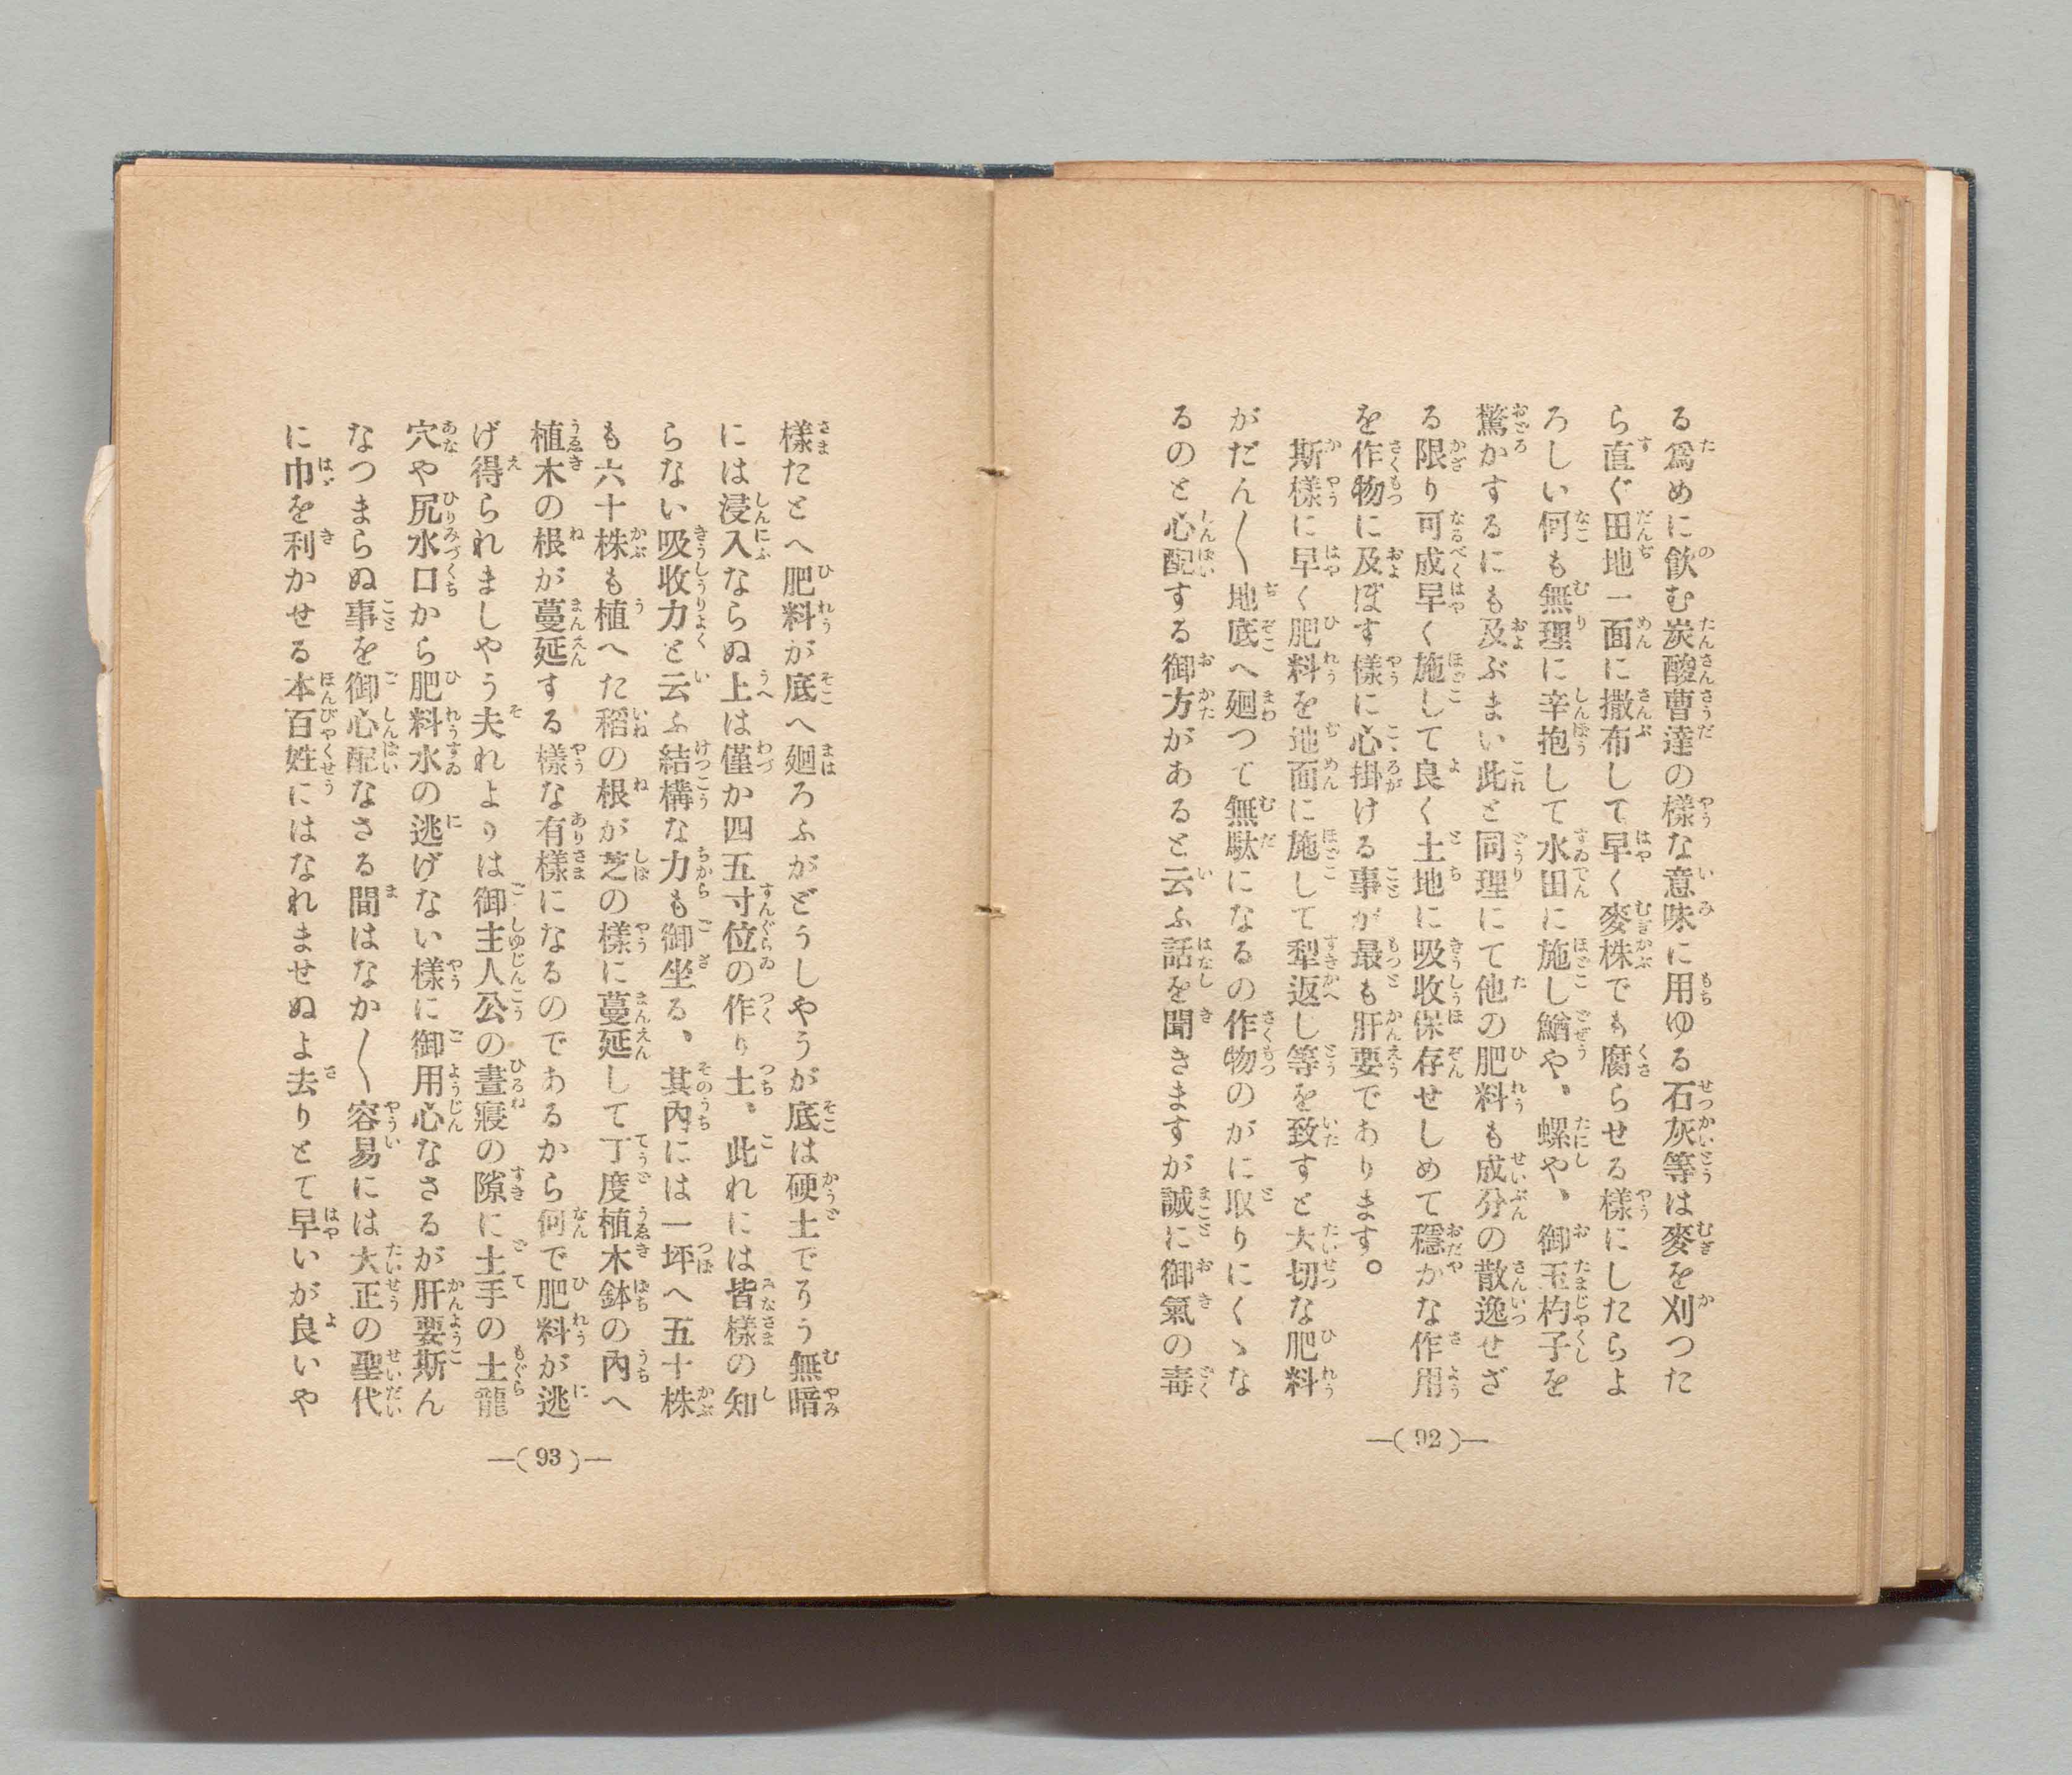 る爲めに飮む炭酸曹達の樣な意味に用ゆる石灰等は麥を刈つた
ら直ぐ田地一面に撒布して早く麥株でも腐らせる樣にしたらよ
ろしい何も無理に辛抱して水田に施し鰌や、螺や、御玉杓子を
驚かするにも及ぶまい此と同理にて他の肥料も成分の散逸せざ
る限り可成早く施して良く土地に吸收保存せしめて穩かな作用
を作物に及ぼす樣に心掛ける事が最も肝要であります。
斯樣に早く肥料を地面に施して犁返し等を致すと大切な肥料
がだん〱地底へ廻つて無駄になるの作物のがに取りにくゝな
るのと心配する御方があると云ふ話を聞きますが誠に御氣の毒
―( 92 )―
樣たとへ肥料が底へ廻ろふがどうしやうが底は硬土でろう無暗
には浸入ならぬ上は僅か四五寸位の作り土、此れには皆樣の知
らない吸收力と云ふ結構な力も御坐る、其內には一坪へ五十株
も六十株も植へた稻の根が芝の樣に蔓延して丁度植木鉢の內へ
植木の根が蔓延する樣な有樣になるのであるから何で肥料が逃
げ得られましやう夫れよりは御主人公の晝寢の隙に土手の土龍
穴や尻水口から肥料水の逃げない樣に御用心なさるが肝要斯ん
なつまらぬ事を御心配なさる間はなか〱容易には大正の聖代
に巾を利かせる本百姓にはなれませぬよ去りとて早いが良いや
―( 93 )―